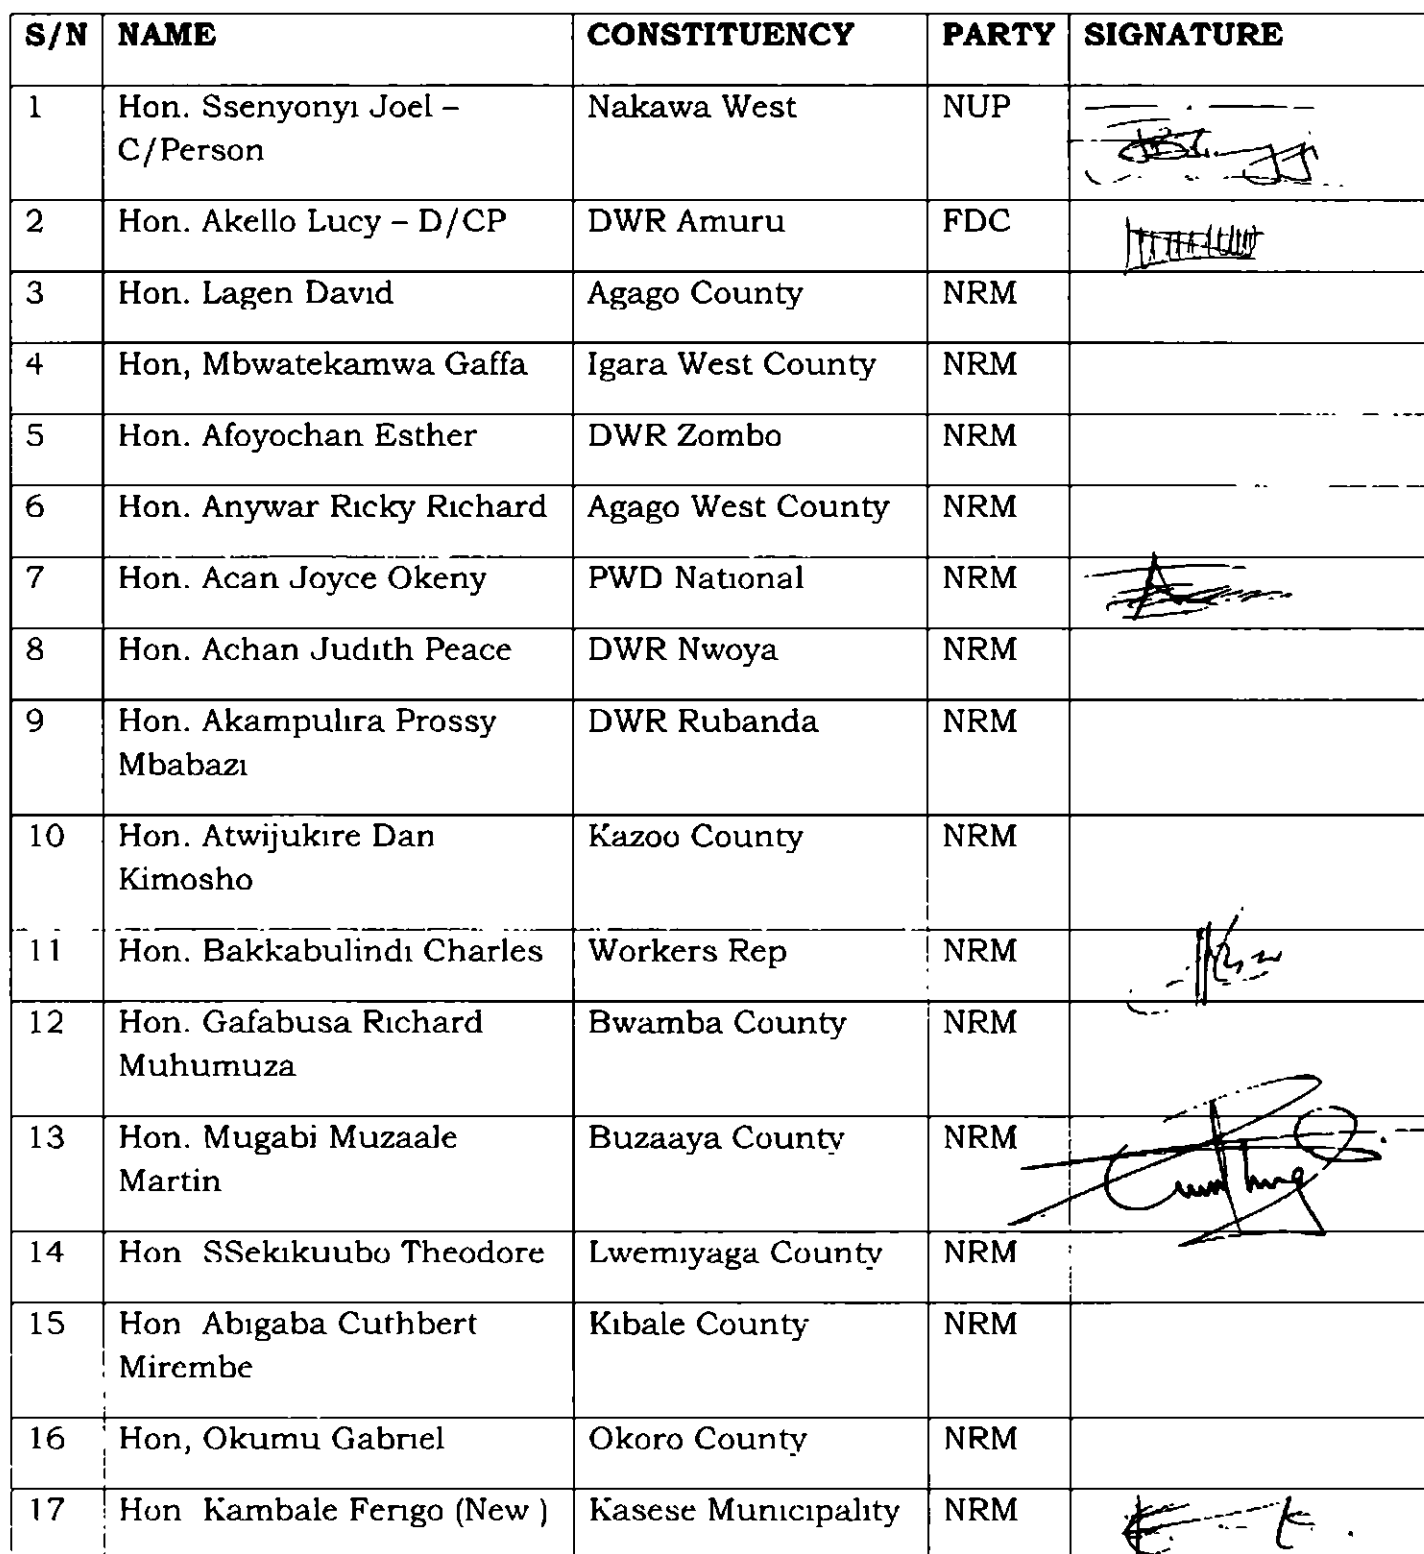 S/N NAME CONSTITUENCY PARTY SIGNATURE
1 Hon. Ssenyonyi Joel – Nakawa West NUP
C/Person
2 Hon. Akello Lucy – D/CP DWR Amuru FDC
3 Hon. Lagen David Agago County NRM
4 Hon, Mbwatekamwa Gaffa Igara West County NRM
5 Hon. Afoyochan Esther DWR Zombo NRM
6 Hon. Anywar Ricky Richard Agago West County NRM
7 Hon. Acan Joyce Okeny PWD National NRM
8 Hon. Achan Judith Peace DWR Nwoya NRM
9 Hon. Akampulira Prossy DWR Rubanda NRM
Mbabazi
10 Hon. Atwijukire Dan Kazoo County NRM
Kimosho
11 Hon. Bakkabulindi Charles Workers Rep NRM
12 Hon. Gafabusa Richard Bwamba County NRM
Muhumuza
13 Hon. Mugabi Muzaale Buzaaya County NRM
Martin
14 Hon SSekikuubo Theodore Lwemiyaga County NRM
15 Hon Abigaba Cuthbert Kibale County NRM
Mirembe
16 Hon, Okumu Gabriel Okoro County NRM
17 Hon Kambale Ferigo (New ) Kasese Municipality NRM